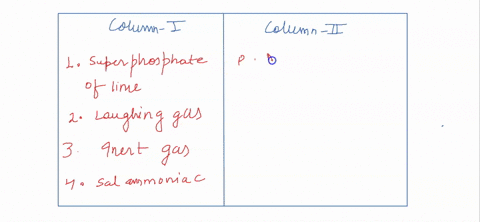 Column-I
Column-II
1. Superphosphate of lime
2. Laughing gas
3. Inert gas
4. Sal ammoniac
P.